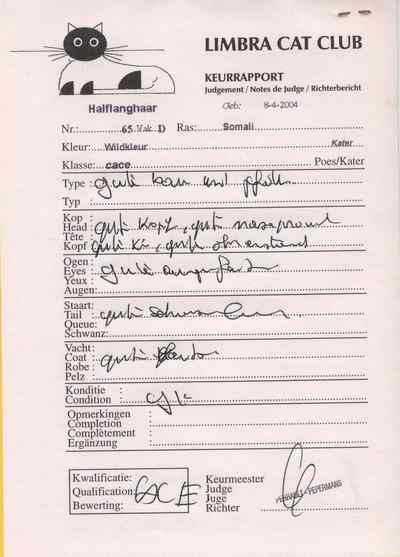 LIMBRA CAT CLUB
KEURRAPPORT
Judgement / Notes de Judge / Richterbericht
Halflanghaar
Geb: 8-4-2004
Nr.: 65 Vak. D Ras: Somali
Kleur: Wildkleur Kater
Klasse: cace Poes/Kater
Type : gute bau und
Typ :
Kop :
Head : gute Kopf, gute nasenprofil
Tête :
Kopf gute Kin, gute ohrenstand
Ogen :
Eyes : gute augenfarbe
Yeux :
Augen:
Staart:
Tail : gute
Queue:
Schwanz:
Vacht:
Coat : gute
Robe :
Pelz :
Konditie :
Condition
Opmerkingen :
Completion :
Complètement :
Ergänzung :
Kwalificatie:
Qualification: CACE
Bewerting:
Keurmeester
Judge
Juge
Richter
PEPERMANS